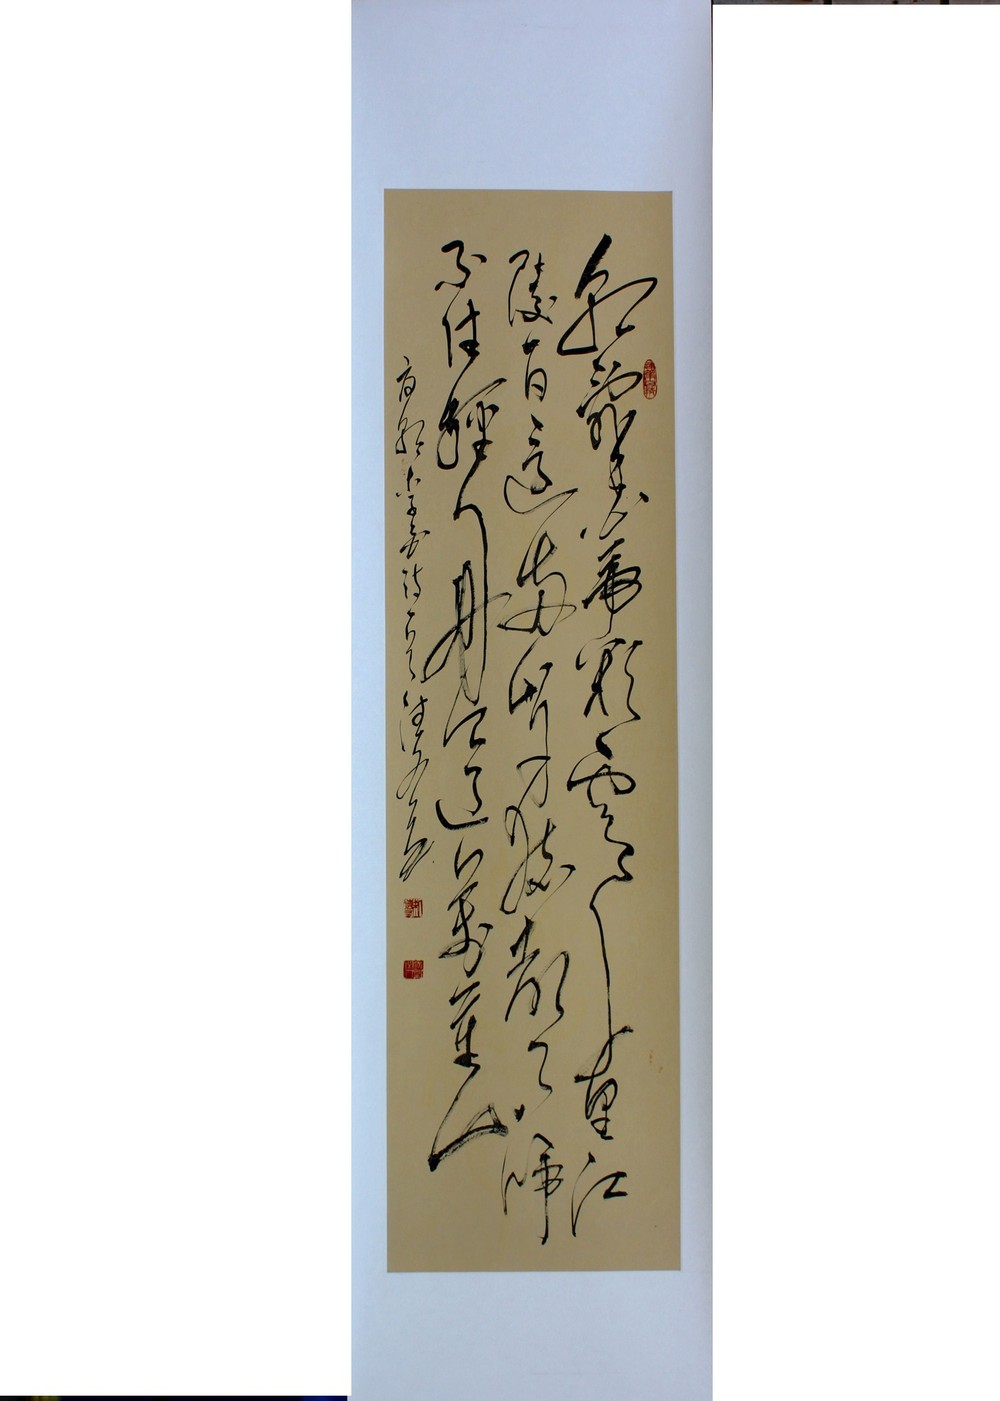 朝辭白帝彩雲間千里江
陵一日還兩岸猿聲啼
不住輕舟已過萬重山
李白詩